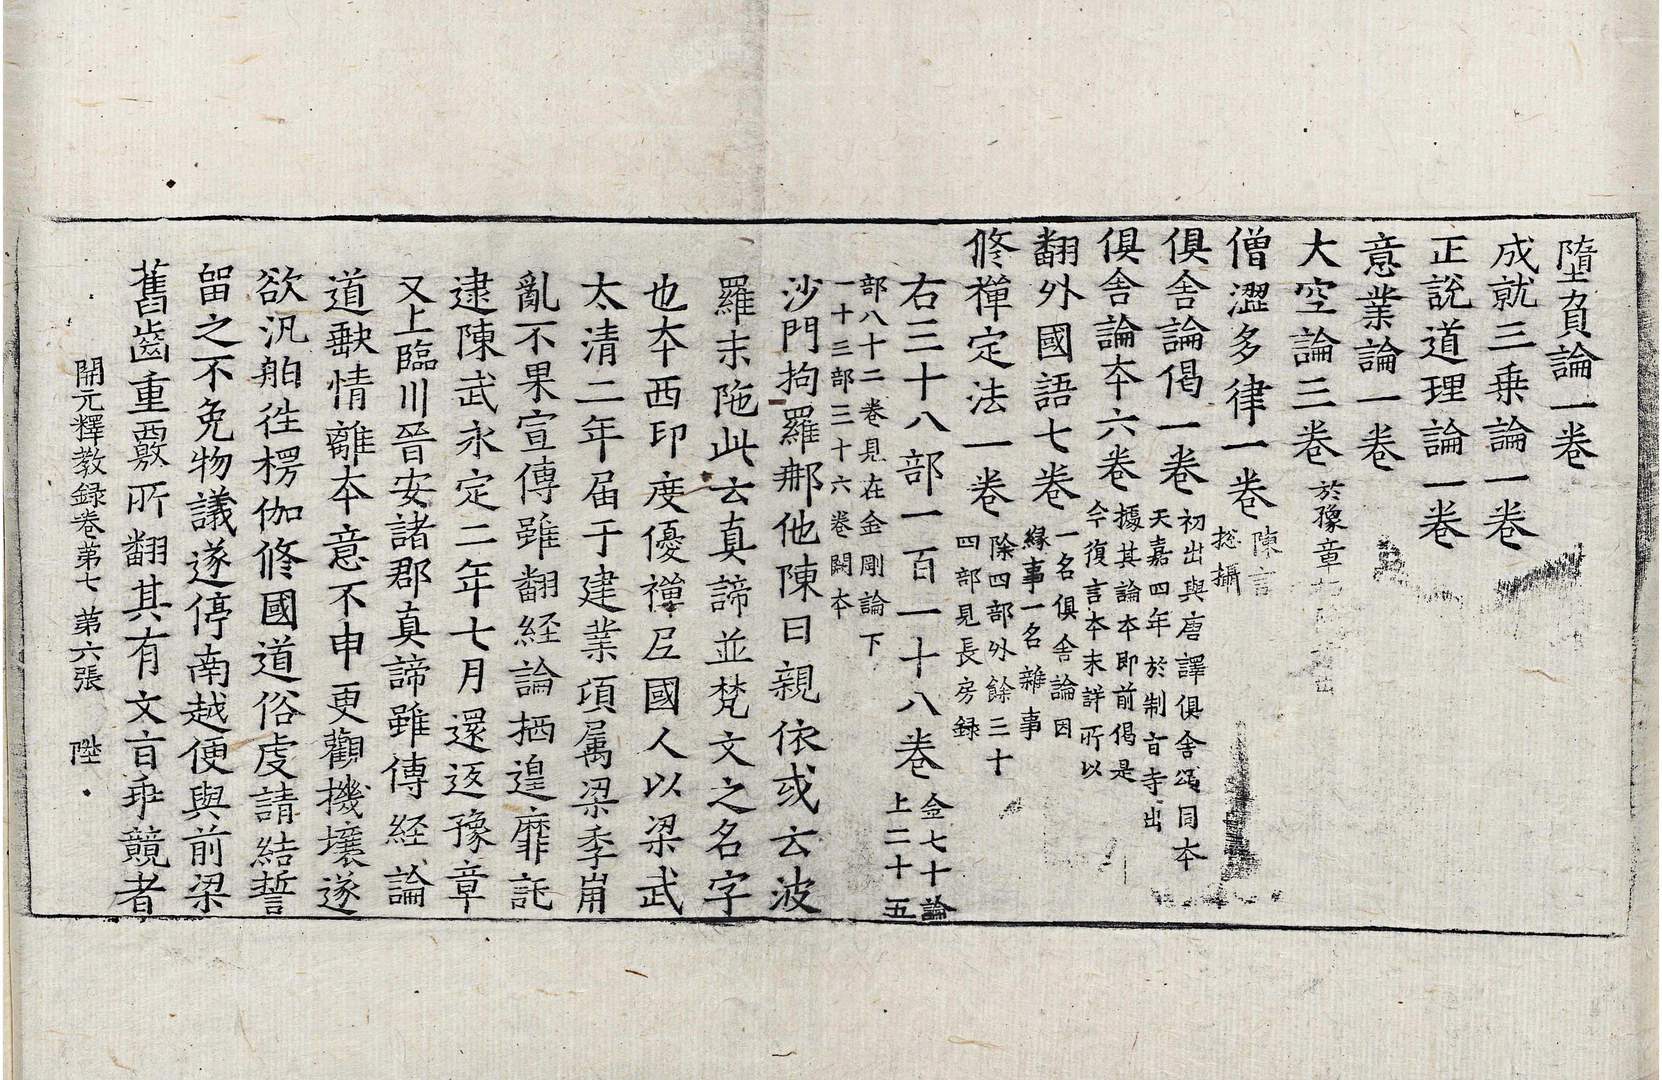 墮負論一卷
成就三乗論一卷
正説道理論一卷
意業論一卷
大空論三卷 於豫章
僧澀多律一卷 陳言
揔攝
俱舍論偈一卷 初出與唐譯俱舍頌同本
天嘉四年於制旨寺出
俱舍論本六卷 據其論本即前偈是
今復言本未詳所以
翻外國語七卷 一名俱舍論因
縁事一名雜事
修禅定法一卷 除四部外餘三十
四部見長房録
右三十八部一百一十八卷 金七十論
上二十五
部八十二卷見在金剛論下
一十三部三十六卷闕本
沙門拘羅那他陳曰親依或云波
羅末陁此云真諦並梵文之名字
也本西印度優禅尼國人以梁武
太清二年届于建業項属梁季崩
亂不果宣傳雖翻経論栖遑靡託
逮陳武永定二年七月還返豫章
又上臨川晉安諸郡真諦雖傳経論
道缺情離本意不申更觀機壤遂
欲汎舶徃楞伽修國道俗虔請結誓
留之不免物議遂停南越便與前梁
舊齒重覈所翻其有文旨乖競者
開元釋教録卷第七 第六張 陛